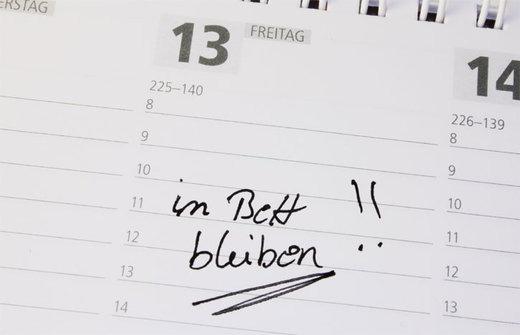 ERSTAG
13 FREITAG
14
225–140
226–139
8
9
10
11
12
13
14
8
9
10
11
12
13
in Bett !!
bleiben